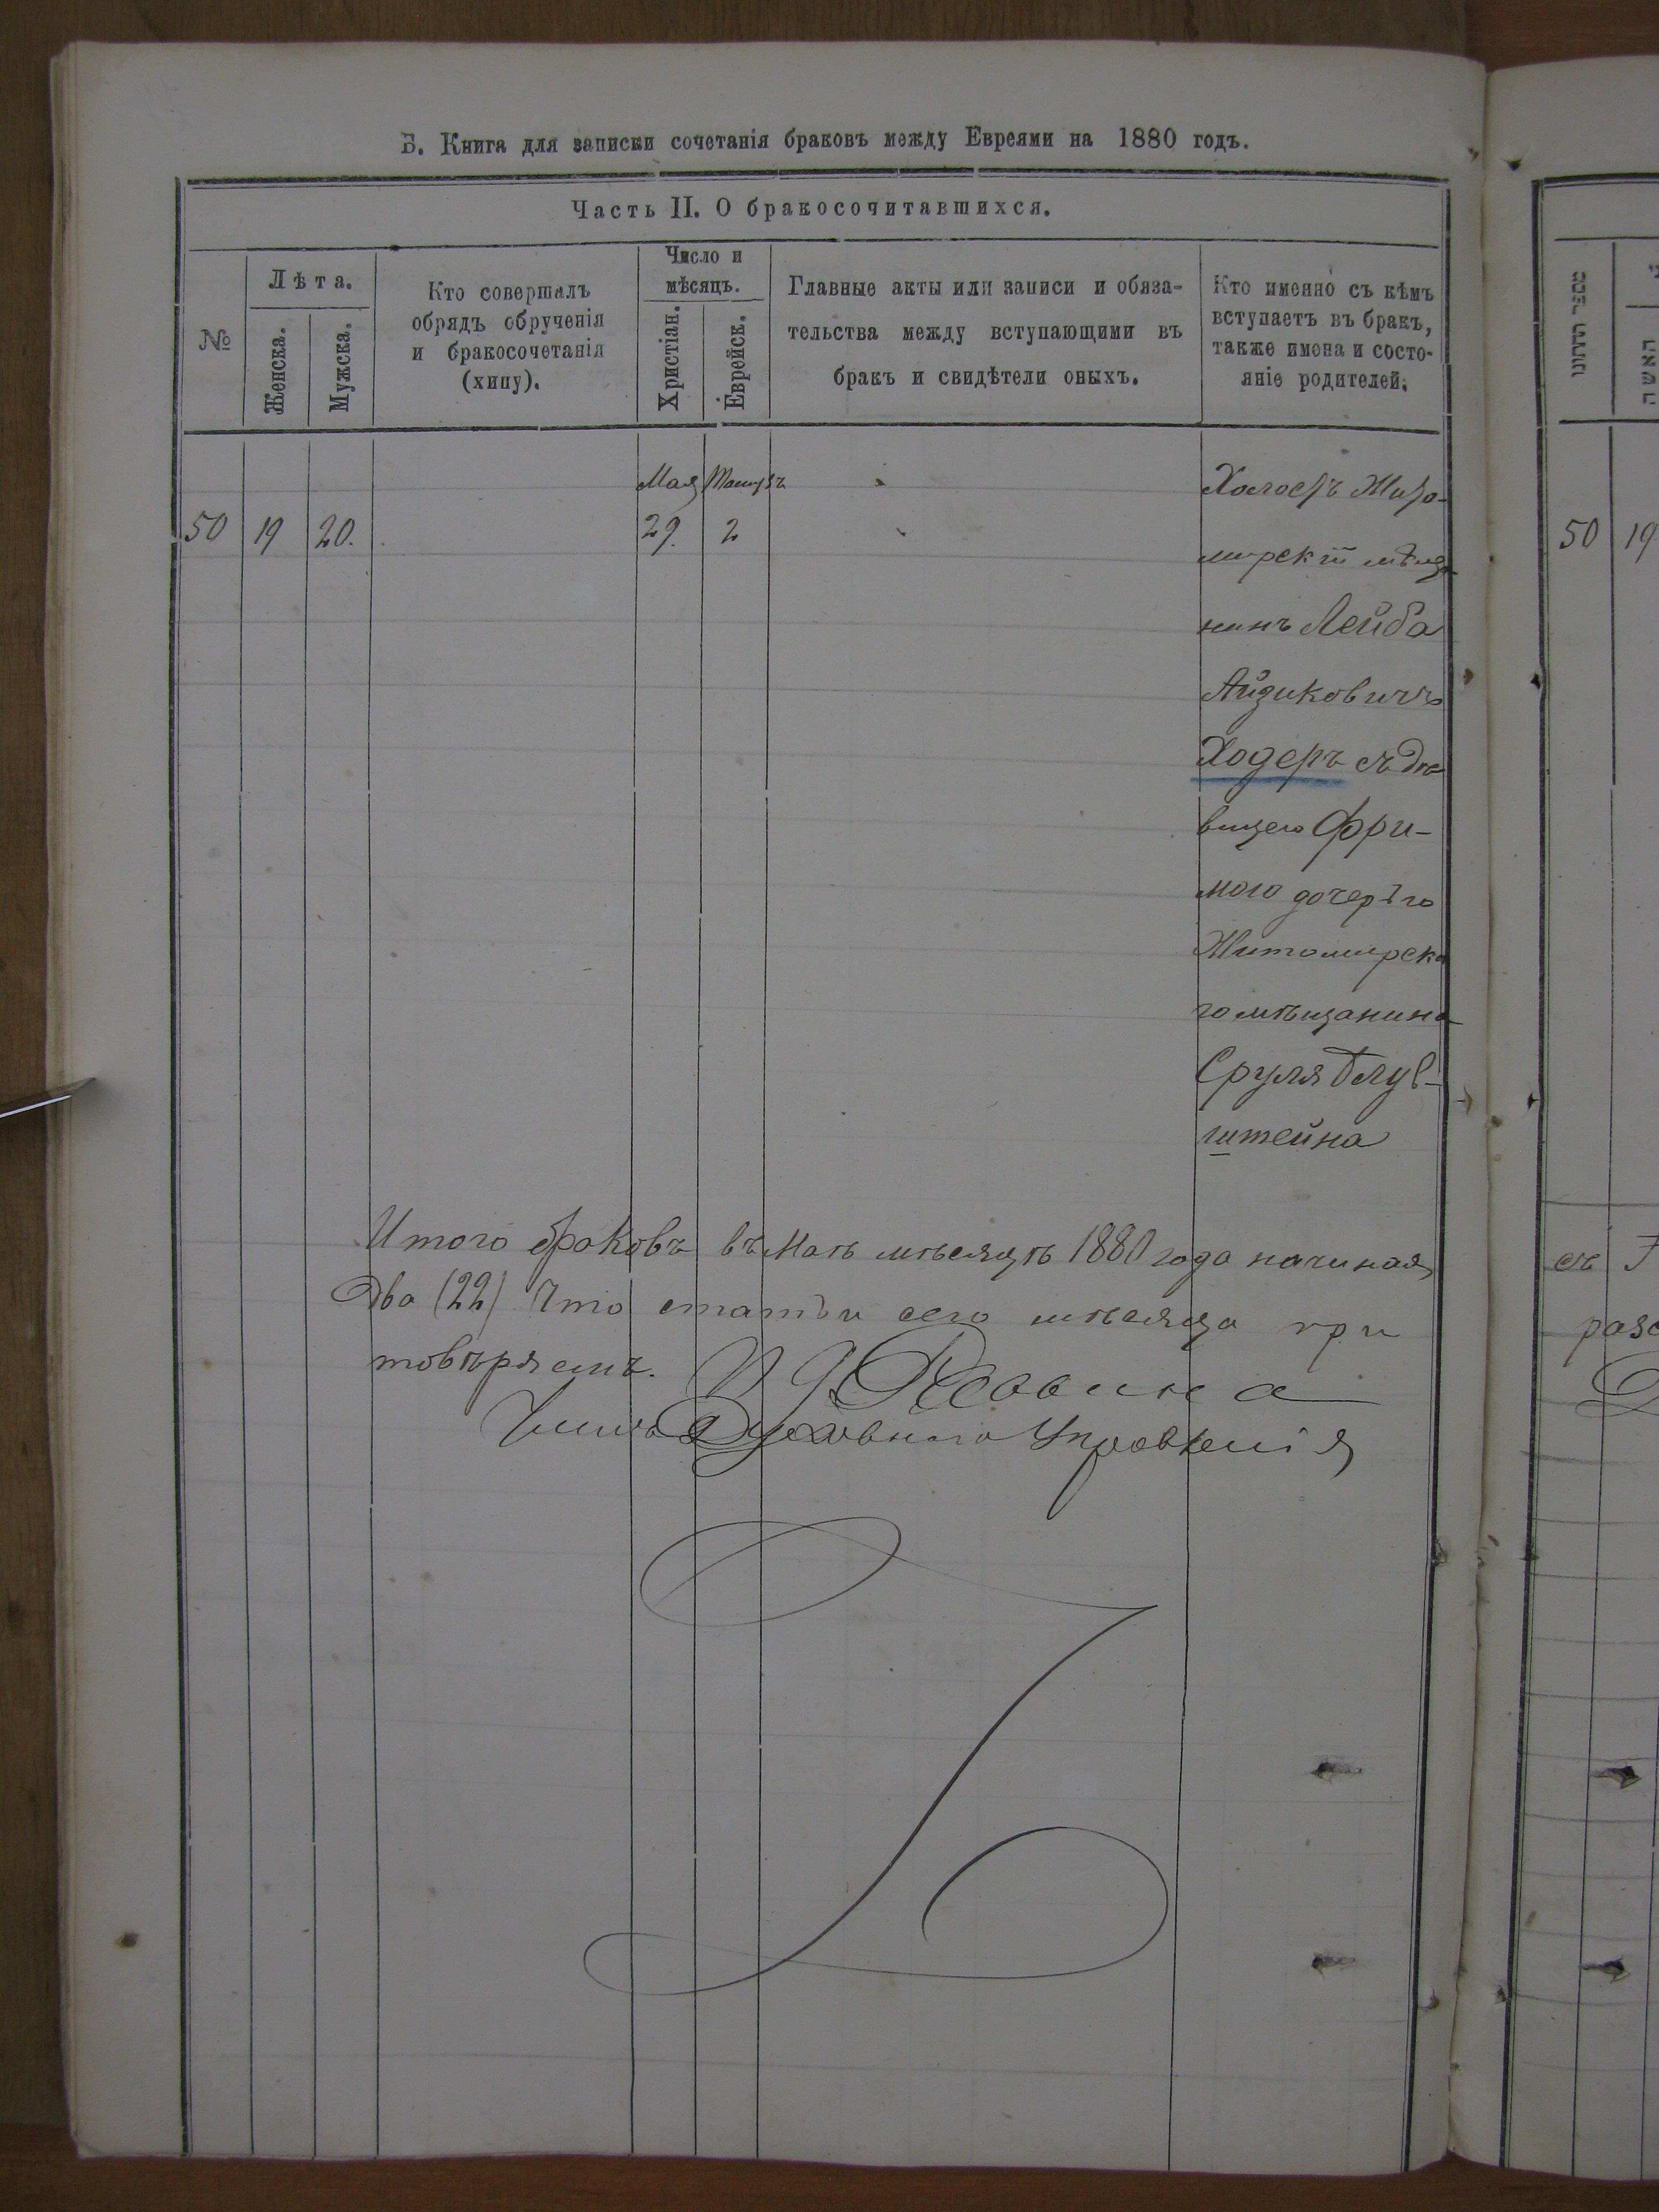 Б. Книга для записки сочетанія браковъ между Евреями на 1880 годъ.
Часть II. О бракосочитавшихся.
№
Лѣта.
Женска.
Мужска.
Кто совершалъ
обрядъ обрученія
и бракосочетанія
(хипу).
Число и
мѣсяцъ.
Христіан.
Еврейск.
Главные акты или записи и обяза-
тельства между вступающими въ
бракъ и свидѣтели оныхъ.
Кто именно съ кѣмъ
вступаетъ въ бракъ,
также имена и состо-
яніе родителей.
Мая
50 19 20. 29. 2
Холостъ Жито-
мирскій мѣща
нинъ Лейба
Айзиковичъ
Ходеръ съ дѣ
вицею Фри-
мою дочерью
Житомирска
го мѣщанина
Сруля Блув-
штейна
Итого браковъ въ Маѣ мѣсяцѣ 1880 года начиная
Два (22) Что статьи сего мѣсяца при
товѣряемъ. Раввина
Члинъ Духовнаго Правленія
מספר החתונו
האשה
50 19
съ